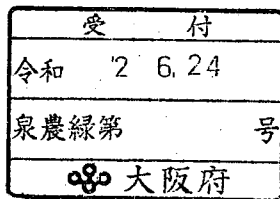 受 付
令和 '2 6. 24
泉農緑第 号
大阪府